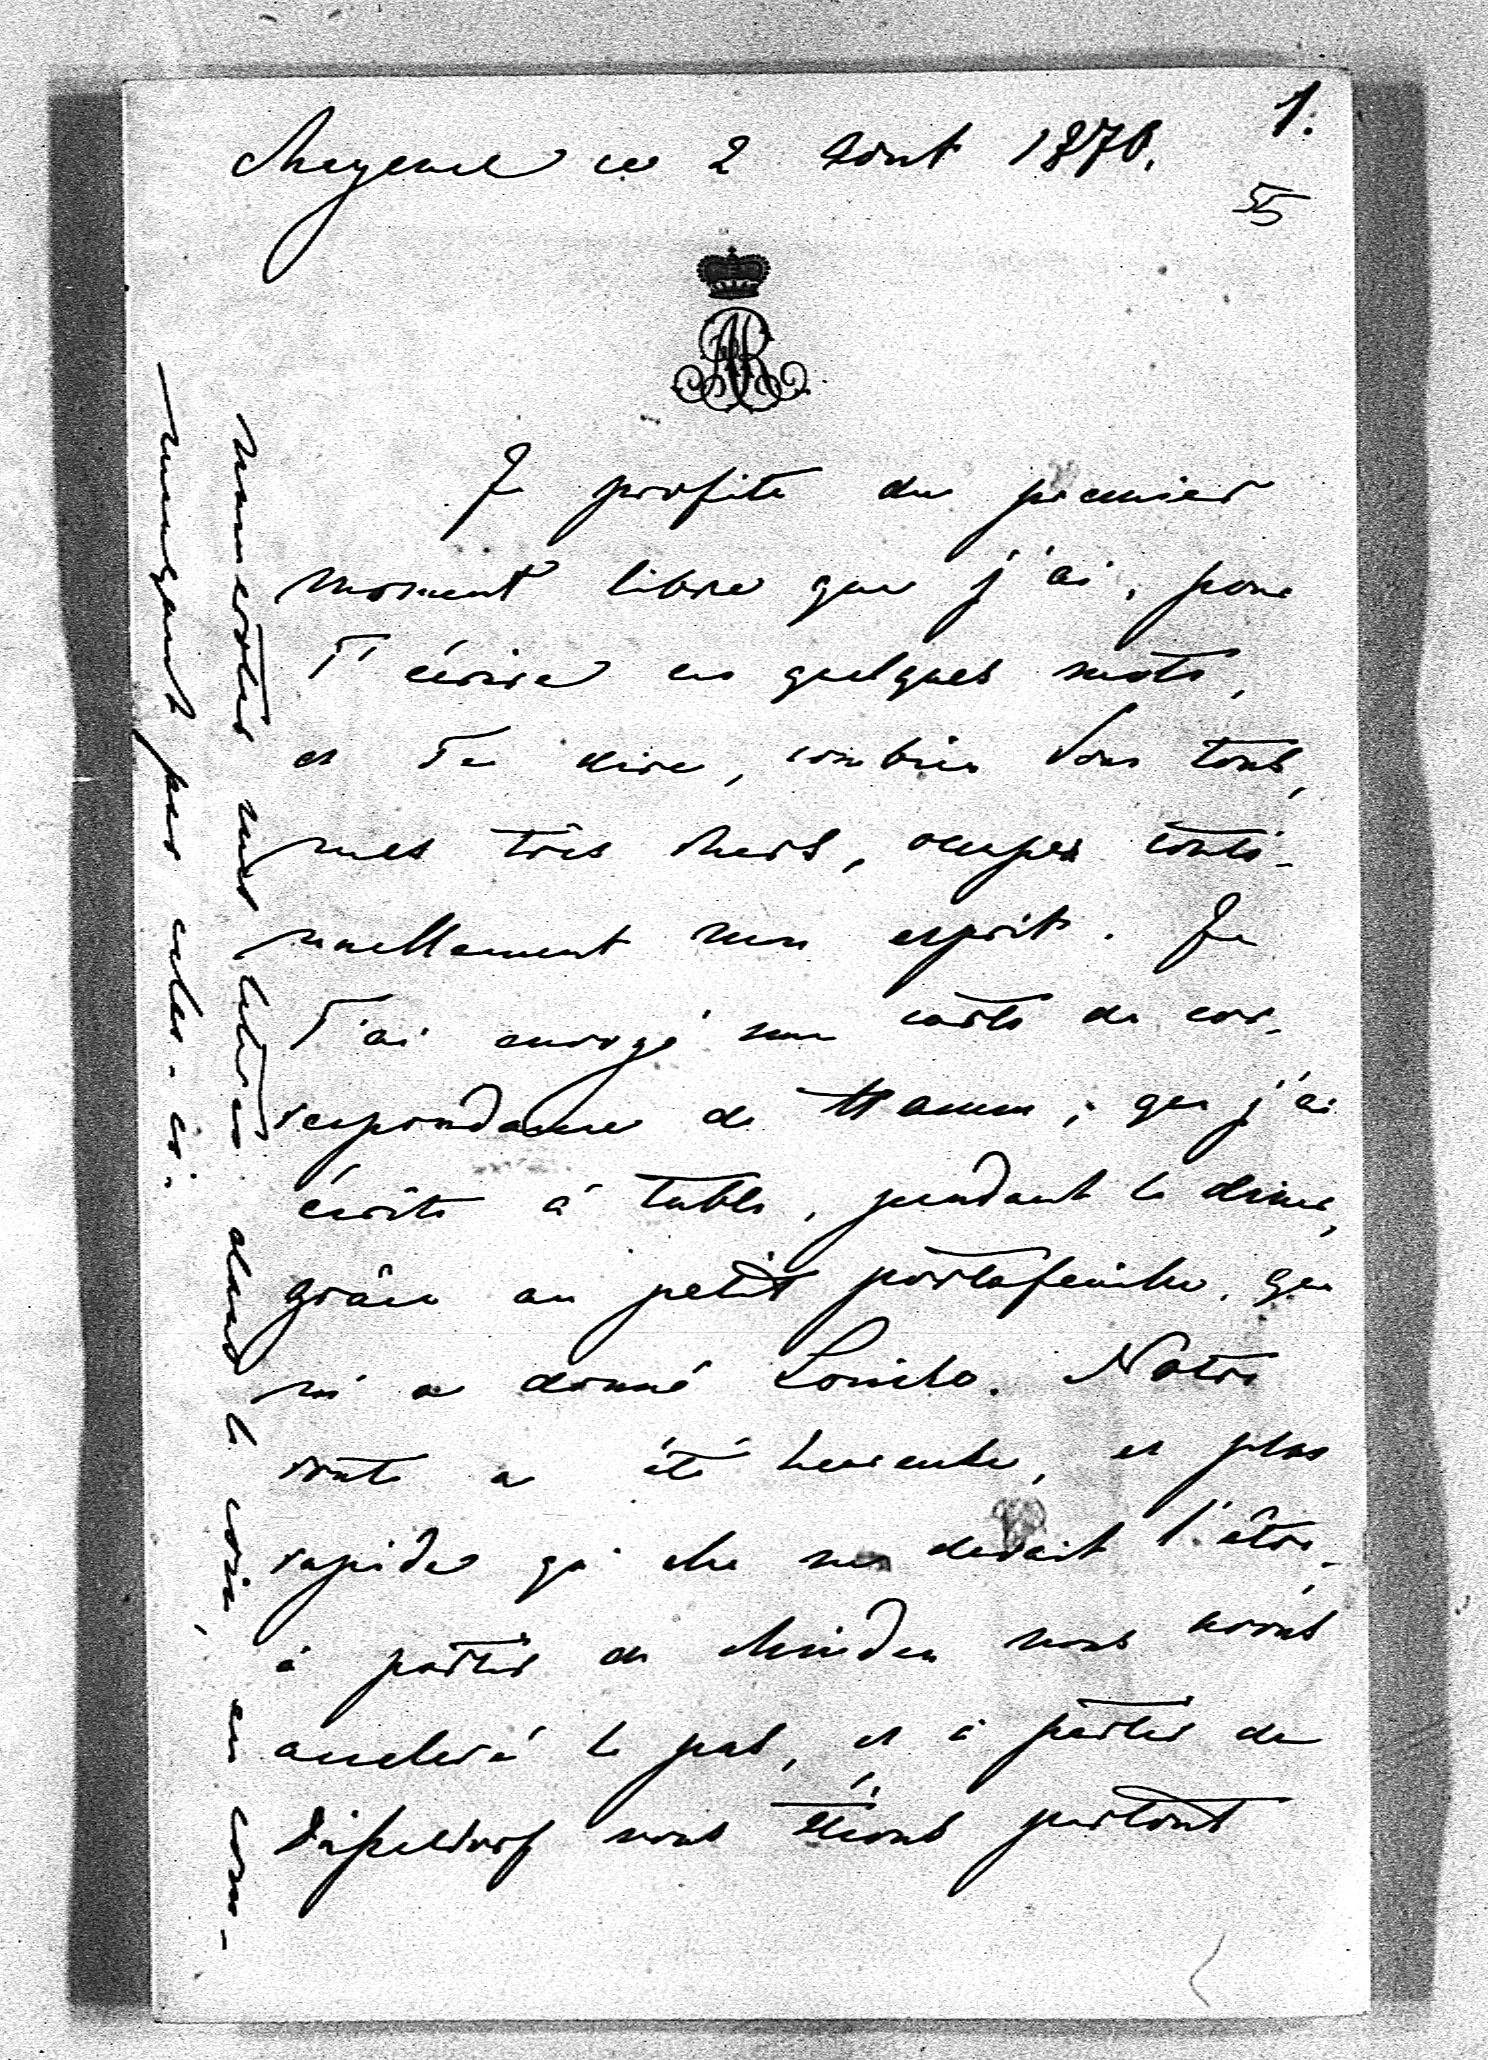 1.
Mayence ce 2 Aout 1870.
55
Je profite du premier
moment libre que j'ai, pour
T'écrire en quelques mots,
et Te dire, combien Vous tous,
mes très chers, occupez conti-
nuellement mon esprit. Je
T'ai envoyé une carte de cor-
respondance de Hamm, que j'ai
écrite à table, pendant le diner,
grâce au petit portefeuille, que
m'a donné Louise. Notre
route a été heureuse, et plus
rapide qu'elle ne devait l'être,
à partir de Minden nous avons
acceleré le pas, et à partir de
Düsseldorf nous étions partout
numerotez mes lettres dans le coin, en com-
mençant par celle-ci.